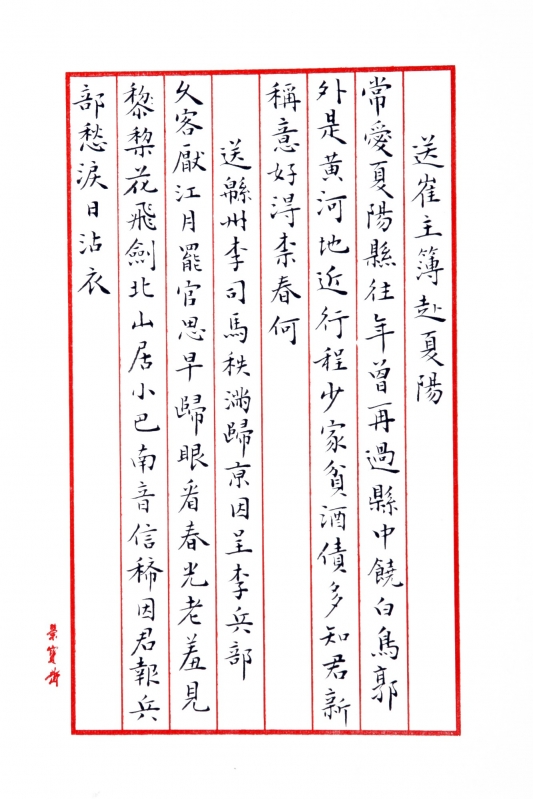 送崔主簿赴夏陽
常愛夏陽縣往年曾再過縣中饒白鳥郭
外是黃河地近行程少家貧酒債多知君新
稱意好得柰春何
送緜州李司馬秩滿歸京因呈李兵部
久客厭江月罷官思早歸眼看春光老羞見
黎梨花飛劍北山居小巴南音信稀因君報兵
部愁淚日沾衣
榮寶齋